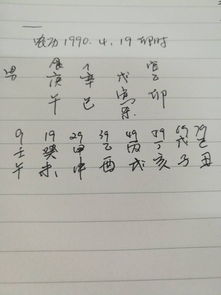 农历 1990.4.19 卯时
食 官
男 庚 辛 戊 乙
午 巳 寅 卯
9 19 29 39 49 59 69 79
壬 癸 甲 乙 丙 丁 戊 己
午 未 申 酉 戌 亥 子 丑